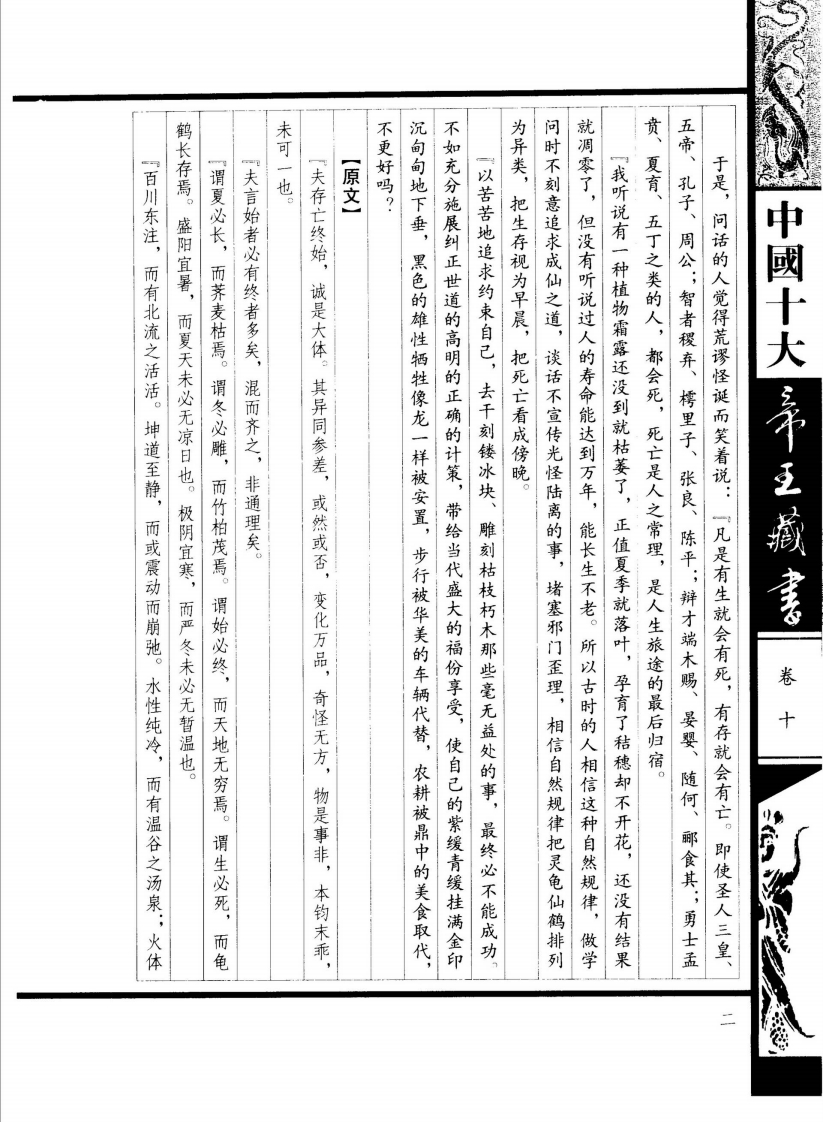 中國十大
帝王藏書
卷十
于是，问话的人觉得荒谬怪诞而笑着说：『凡是有生就会有死，有存就会有亡。即使圣人三皇、
五帝、孔子、周公；智者稷弃、樗里子、张良、陈平；辩才端木赐、晏婴、随何、郦食其；勇士孟
贲、夏育、五丁之类的人，都会死，死亡是人之常理，是人生旅途的最后归宿。
『我听说有一种植物霜露还没到就枯萎了，正值夏季就落叶，孕育了秸穗却不开花，还没有结果
就凋零了，但没有听说过人的寿命能达到万年，能长生不老。所以古时的人相信这种自然规律，做学
问时不刻意追求成仙之道，谈话不宣传光怪陆离的事，堵塞邪门歪理，相信自然规律把灵龟仙鹤排列
为异类，把生存视为早晨，把死亡看成傍晚。
『以苦苦地追求约束自己，去干刻镂冰块、雕刻枯枝朽木那些毫无益处的事，最终必不能成功。
不如充分施展纠正世道的高明的正确的计策，带给当代盛大的福份享受，使自己的紫缓青缓挂满金印
沉甸甸地下垂，黑色的雄性牺牲像龙一样被安置，步行被华美的车辆代替，农耕被鼎中的美食取代，
不更好吗？
【原文】
『夫存亡终始，诚是大体。其异同参差，或然或否，变化万品，奇怪无方，物是事非，本钧末乖，
未可一也。
『夫言始者必有终者多矣，混而齐之，非通理矣。
『谓夏必长，而荞麦枯焉。谓冬必雕，而竹柏茂焉。谓始必终，而天地无穷焉。谓生必死，而龟
鹤长存焉。盛阳宜暑，而夏天未必无凉日也。极阴宜寒，而严冬未必无暂温也。
『百川东注，而有北流之活活。坤道至静，而或震动而崩弛。水性纯冷，而有温谷之汤泉；火体
二